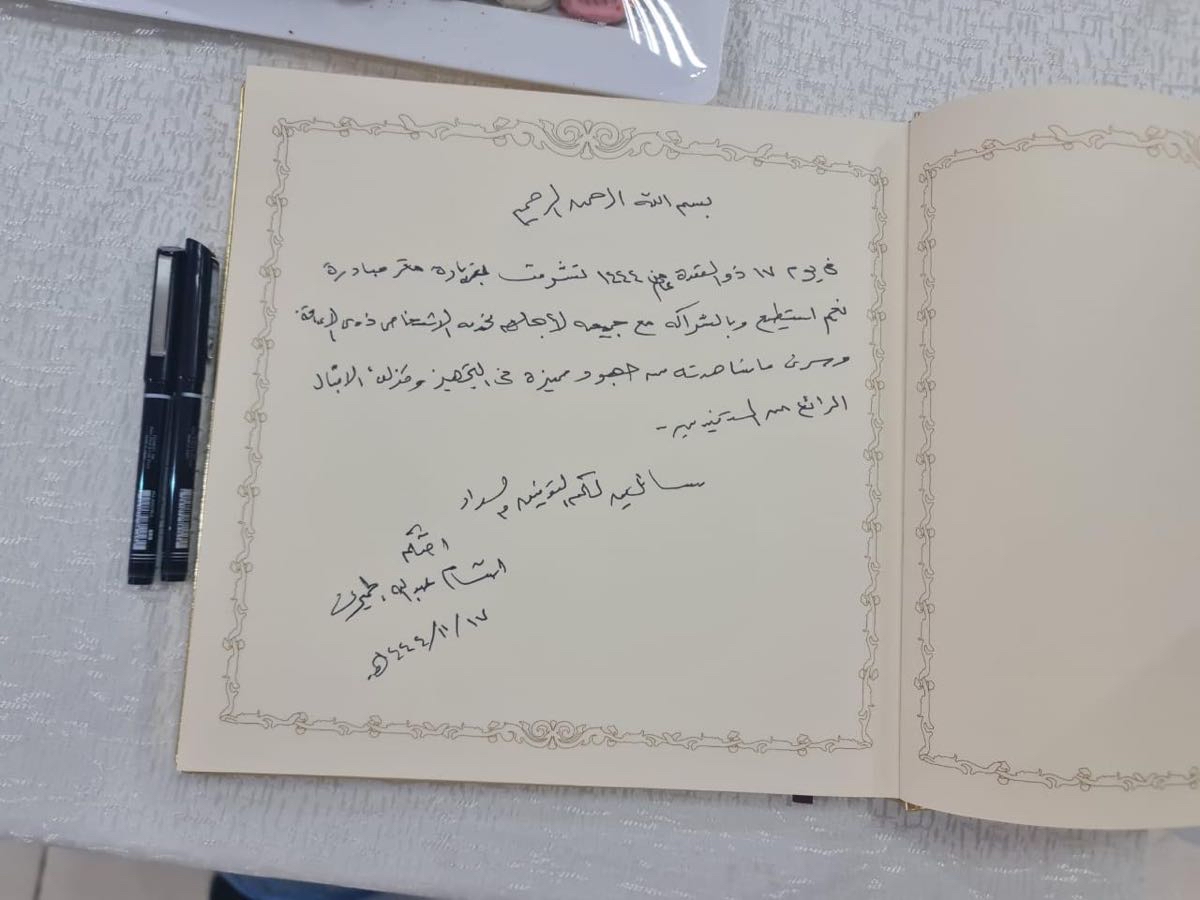 بسم الله الرحمن الرحيم
في يوم ١٧ ذو القعدة عام ١٤٤٤ تشرفت بزيارة مقر مبادرة
نعم استطيع وبالشراكه مع جمعيه لأجلهم لخدمه الاشخاص ذوي الإعاقة
وسرني ماشاهدته من جهود مميزة في التجهيز وكذلك الاقبال
الرائع من المستفيدين -
سائلين لكم التوفيق والسداد
اختكم
ابتسام عبدالله
١٤٤٤/١١/١٧هـ